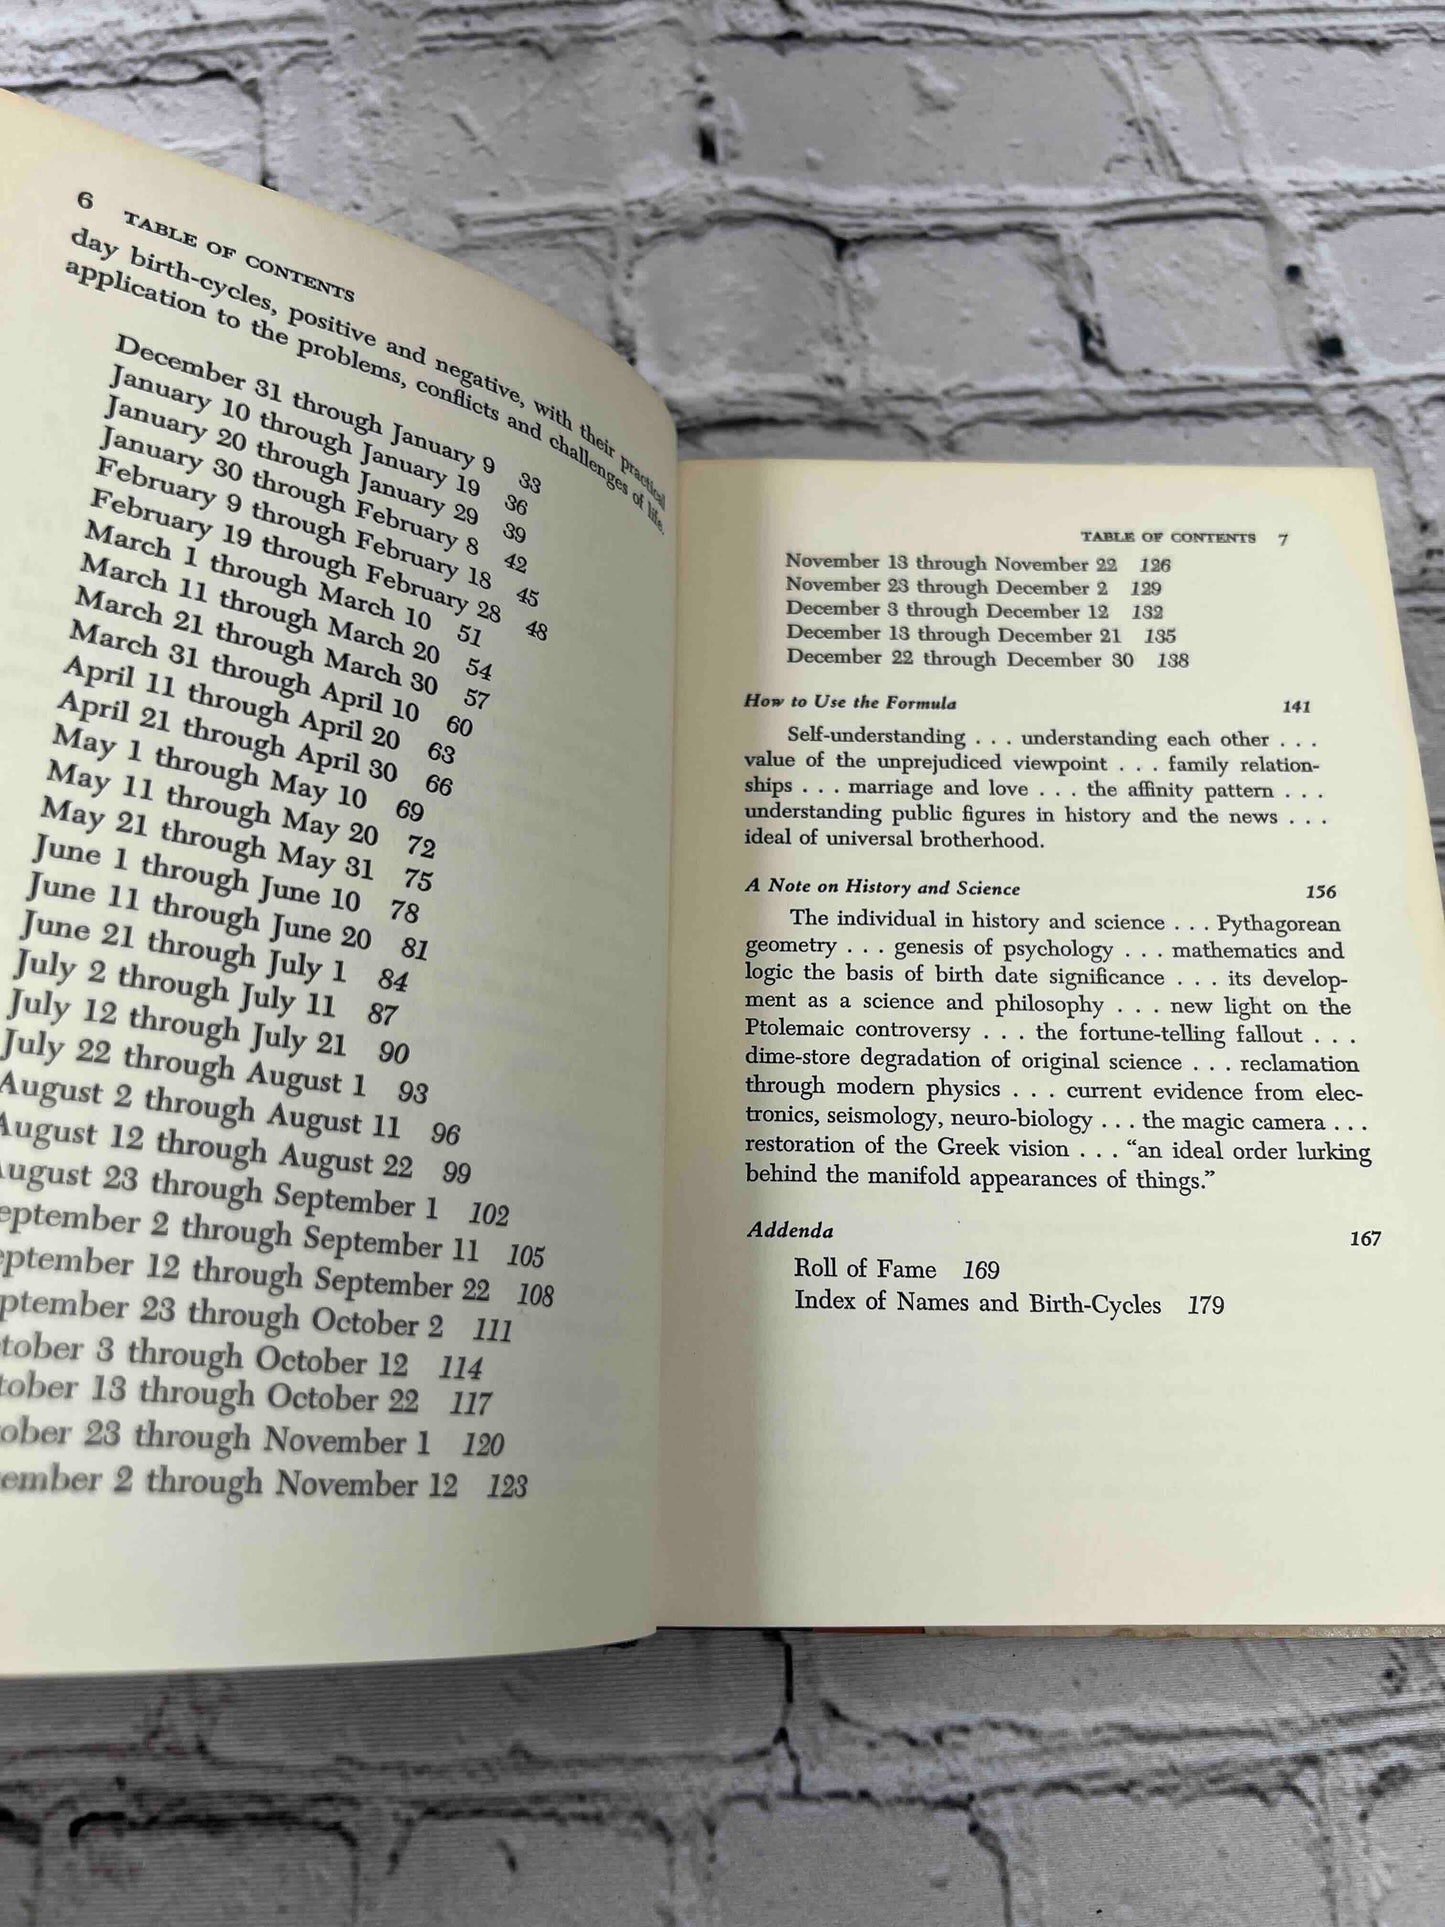 6 TABLE OF CONTENTS
day birth-cycles, positive and negative, with their practical
application to the problems, conflicts and challenges of life.
December 31 through January 9 33
January 10 through January 19 36
January 20 through January 29 39
January 30 through February 8 42
February 9 through February 18 45
February 19 through February 28 48
March 1 through March 10 51
March 11 through March 20 54
March 21 through March 30 57
March 31 through April 10 60
April 11 through April 20 63
April 21 through April 30 66
May 1 through May 10 69
May 11 through May 20 72
May 21 through May 31 75
June 1 through June 10 78
June 11 through June 20 81
June 21 through July 1 84
July 2 through July 11 87
July 12 through July 21 90
July 22 through August 1 93
August 2 through August 11 96
August 12 through August 22 99
ugust 23 through September 1 102
eptember 2 through September 11 105
eptember 12 through September 22 108
ptember 23 through October 2 111
tober 3 through October 12 114
tober 13 through October 22 117
ober 23 through November 1 120
ember 2 through November 12 123
TABLE OF CONTENTS 7
November 13 through November 22 126
November 23 through December 2 129
December 3 through December 12 132
December 13 through December 21 135
December 22 through December 30 138
How to Use the Formula 141
Self-understanding . . . understanding each other . . .
value of the unprejudiced viewpoint . . . family relation-
ships . . . marriage and love . . . the affinity pattern . . .
understanding public figures in history and the news . . .
ideal of universal brotherhood.
A Note on History and Science 156
The individual in history and science . . . Pythagorean
geometry . . . genesis of psychology . . . mathematics and
logic the basis of birth date significance . . . its develop-
ment as a science and philosophy . . . new light on the
Ptolemaic controversy . . . the fortune-telling fallout . . .
dime-store degradation of original science . . . reclamation
through modern physics . . . current evidence from elec-
tronics, seismology, neuro-biology . . . the magic camera . . .
restoration of the Greek vision . . . “an ideal order lurking
behind the manifold appearances of things.”
Addenda 167
Roll of Fame 169
Index of Names and Birth-Cycles 179